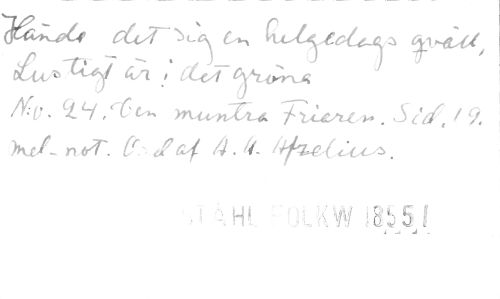 Hände det sig en helgedags qväll,
Lustigt är i det gröna
N:o. 24. Den muntra Friaren. Sid. 19.
mel-not. Ord af A. A. Afzelius.
STÅHL FOLKW 1855 /